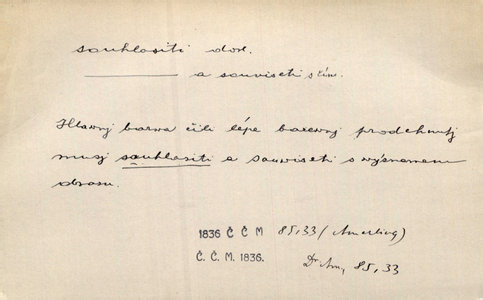 souhlasiti dov.
——— a souviseti s tím.
Hlavnj barva čili lépe barevnj prodchnutj
musj souhlasiti a souviseti s wýznamem
obrasu.
1836 Č Č M 85,33 (Amerling)
Č. Č. M. 1836.
Dr Am, 85,33